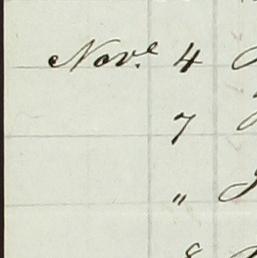 Nov.e 4
7
"
8